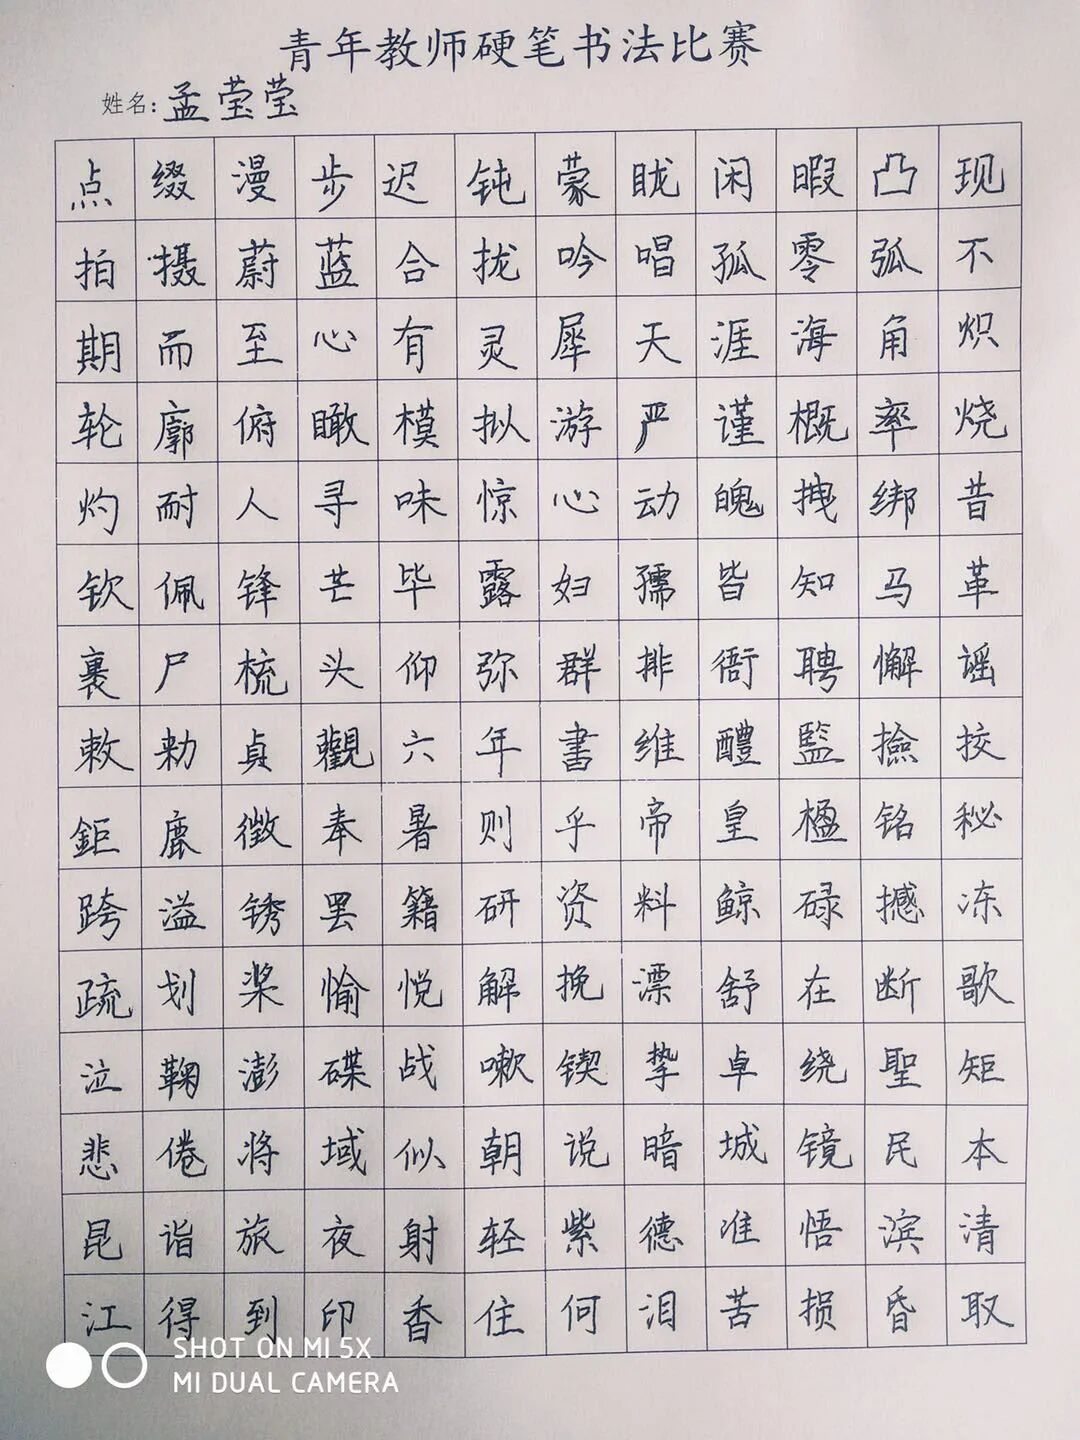 青年教师硬笔书法比赛
姓名:孟莹莹
点缀漫步迟钝蒙眬闲暇凸现
拍摄蔚蓝合拢吟唱孤零弧不
期而至心有灵犀天涯海角炽
轮廓俯瞰模拟游严谨概率烧
灼耐人寻味惊心动魄拽绑昔
钦佩锋芒毕露妇孺皆知马革
裹尸梳头仰弥群排衙聘懈谣
敕勅貞觀六年書维醴監撿挍
鉅鹿徵奉暑则乎帝皇楹铭秘
跨溢锈罢籍研资料鲸碌撼冻
疏划桨愉悦解挽漂舒在断歌
泣鞠澎碟战嗽锲挚卓绕聖矩
悲倦将域似朝说暗城镜民本
昆诣旅夜射轻紫德准悟滨清
江得到印香住何泪苦损昏取
SHOT ON MI 5X
MI DUAL CAMERA